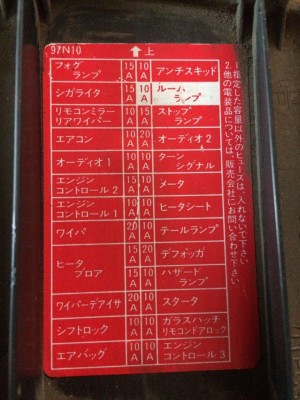 97N10
↑上
フォグランプ 15A 10A アンチスキッド
シガライタ 15A 10A ルームランプ
リモコンミラー リアワイパー 10A 15A ストップランプ
エアコン 10A 20A オーディオ2
オーディオ1 10A 10A ターンシグナル
エンジンコントロール2 15A 10A メータ
エンジンコントロール1 10A 10A ヒータシート
ワイパ 20A 10A テールランプ
ヒータブロア 15A 20A デフォッガ
15A 10A ハザードランプ
ワイパーデアイサ 20A 10A スタータ
シフトロック 10A 10A ガラスハッチ リモコンドアロック
エアバッグ 10A 10A エンジンコントロール3
1.指定した容量以外のヒューズは、入れないで下さい
2.他の電装品については、販売会社にお問い合わせ下さい